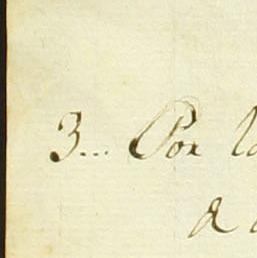 3... Por
a